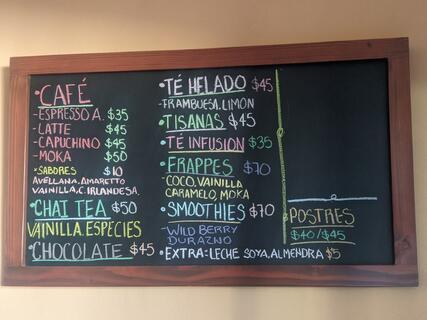 •CAFÉ
-ESPRESSO A. $35
-LATTE $45
-CAPUCHINO $45
-MOKA $50
•SABORES $10
AVELLANA, AMARETTO
VAINILLA, C. IRLANDESA.
•CHAI TEA $50
VAINILLA ESPECIES
•CHOCOLATE $45
•TÉ HELADO $45
-FRAMBUESA, LIMON
•TISANAS $45
•TÉ INFUSION $35
•FRAPPES $70
-COCO, VAINILLA
CARAMELO, MOKA
•SMOOTHIES $70
WILD BERRY
DURAZNO
•EXTRA: LECHE SOYA, ALMENDRA $5
•POSTRES
$40/$45